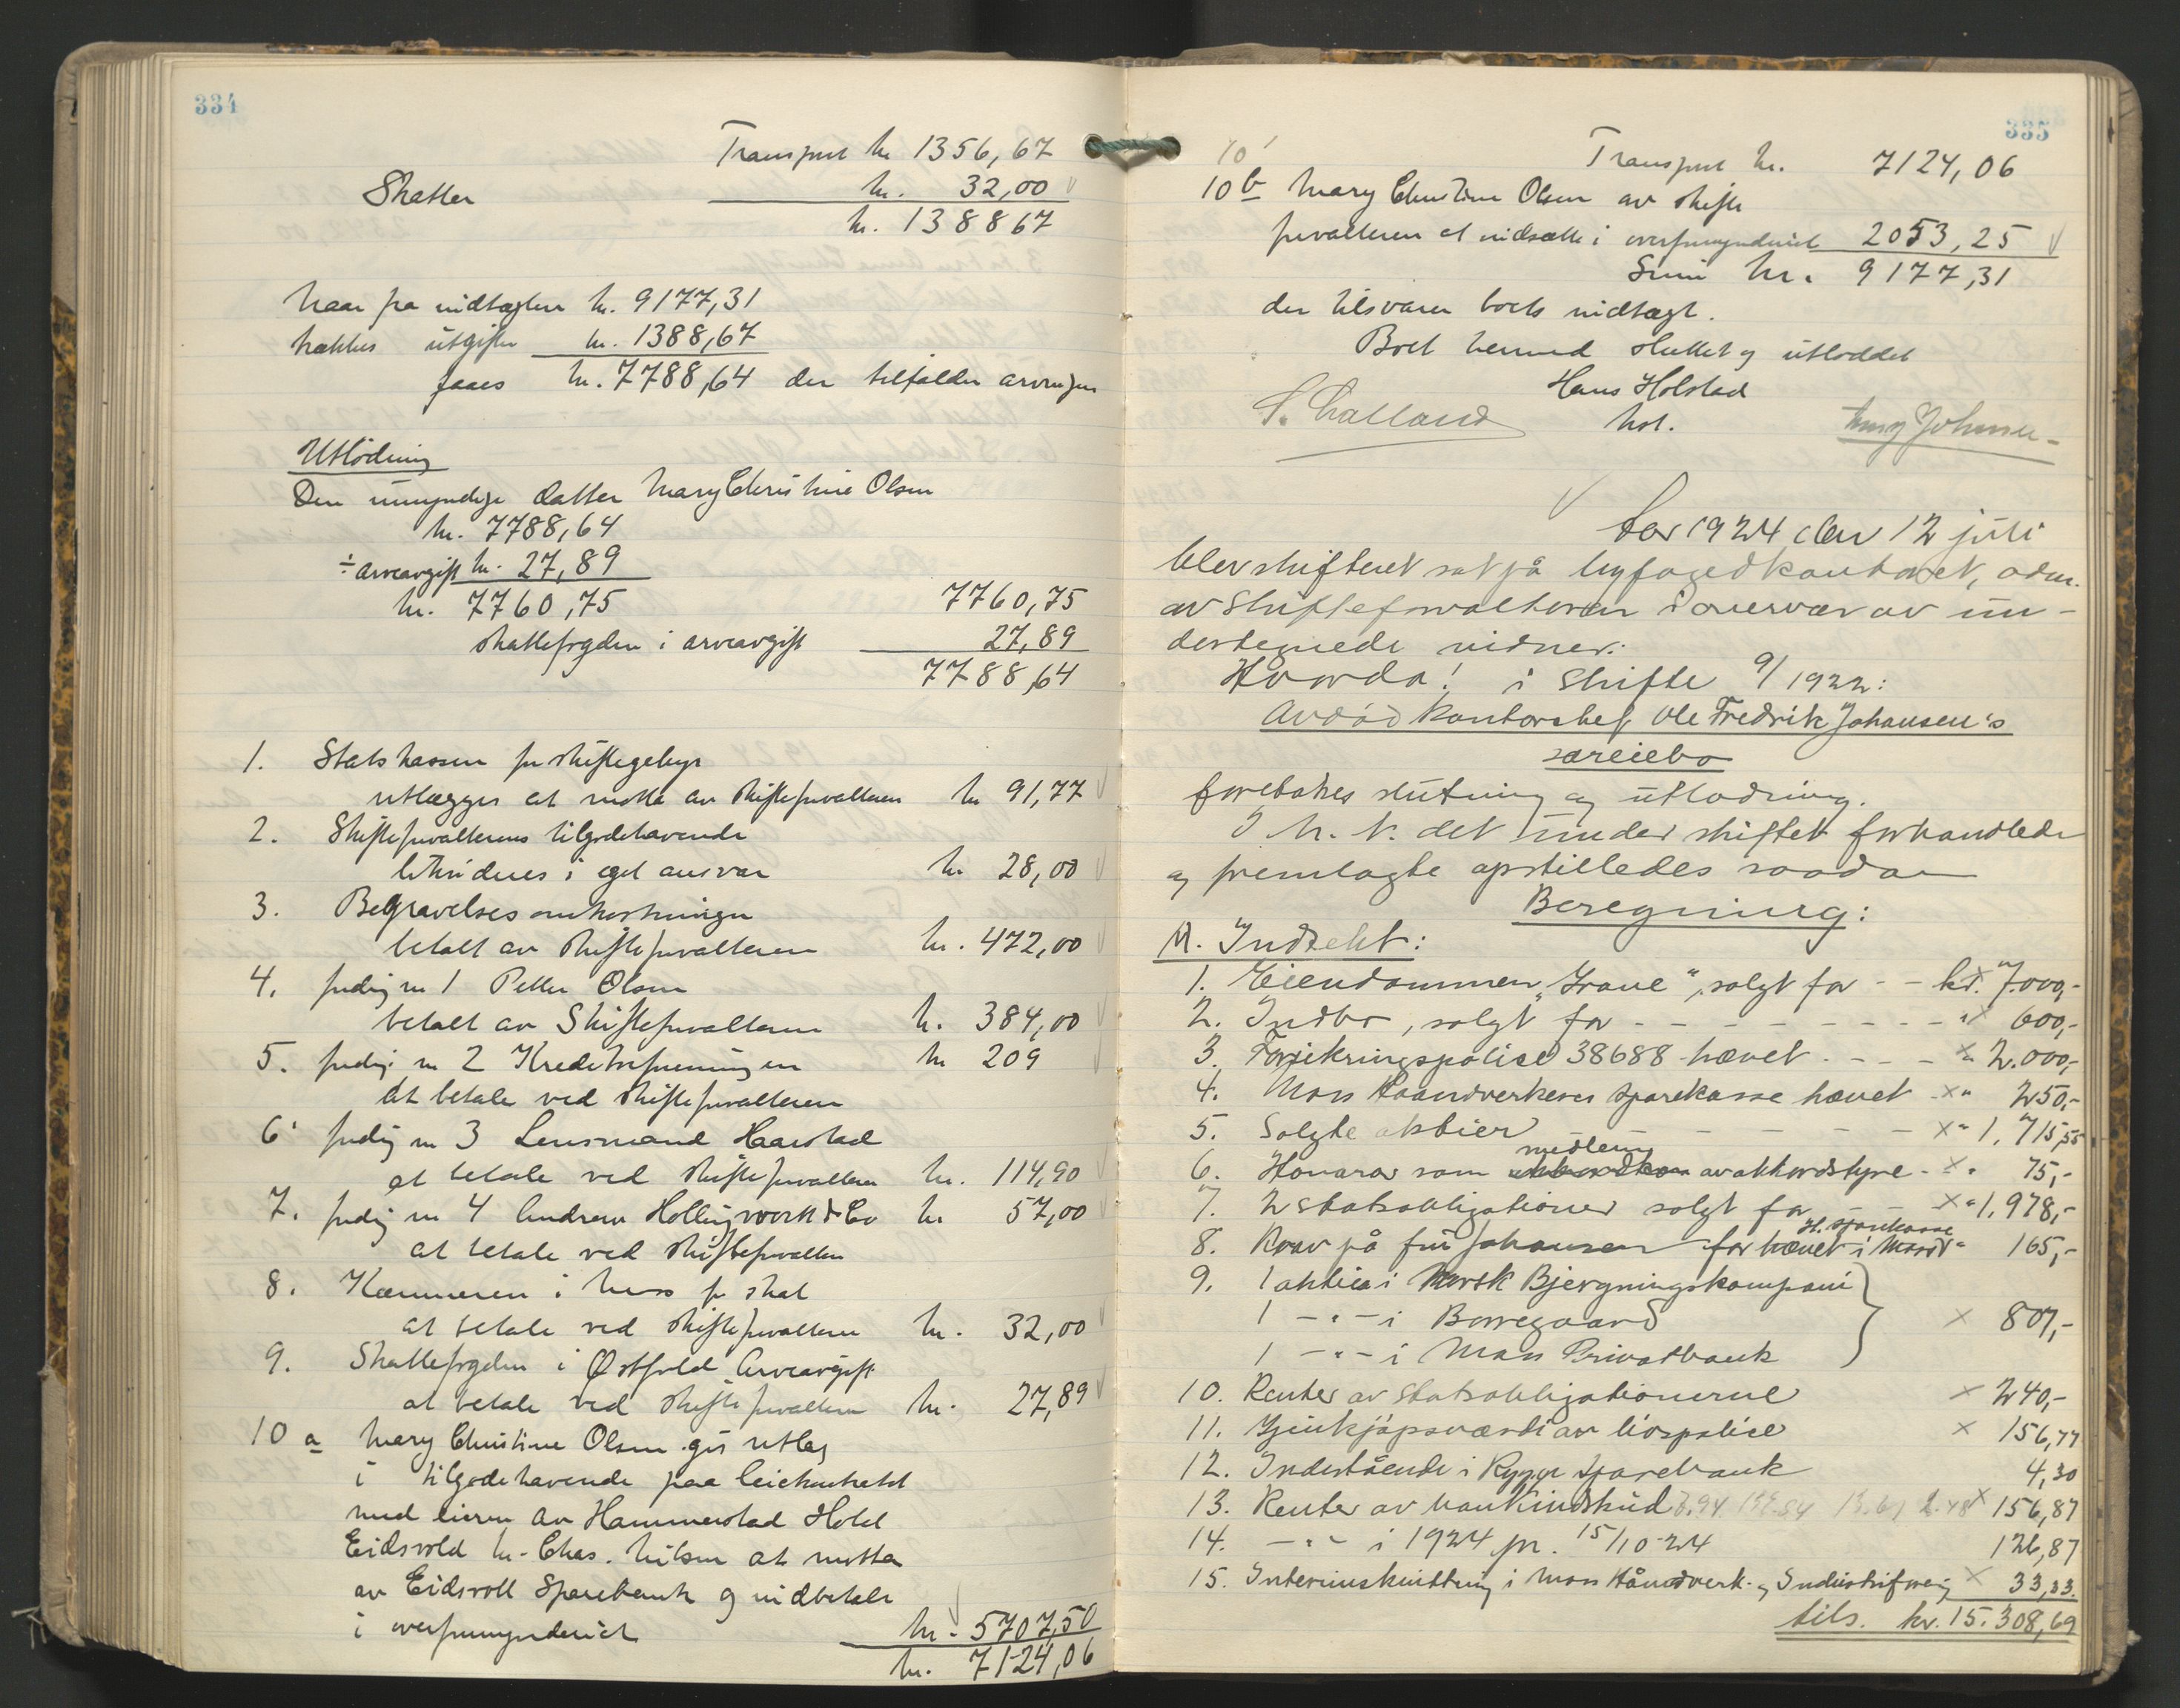 334
Transport kr 1356,67
Skatter kr. 32,00
kr. 1388 67
Naar fra indtægten kr. 9177,31
trækkes utgifter kr. 1388,67
faaes kr. 7788,64 der tilfalder arvingen
Utlodning
Den umyndige datter Mary Christine Olsen
kr. 7788,64
÷ arveavgift kr. 27,89
kr. 7760,75 7760,75
skattefogden i arveavgift 27,89
7788,64
1. Statskassen for skiftegebyr
utlægges at motta av skifteforvalteren kr 91,77
2. Skifteforvalterens tilgodehavende
likvideres i eget ansvar kr 28,00
3. Begravelsesomkostninger
betalt av skifteforvalteren kr. 472,00
4. fordrig nr 1 Petter Olsen
betalt av Skifteforvalteren kr. 384,00
5. fordrig nr 2 Kreditorforeningen kr 209
At betale ved skifteforvalteren
6. fordrig nr 3 Lensmand Haarstad
at betale ved skifteforvalteren kr. 114,90
7. fordrig nr 4 Andrew Hollingworth & Co kr 57,00
at betale ved skifteforvalteren
8. Kæmneren i Moss for skat
at betale ved skifteforvalteren kr. 32,00
9. Skattefogden i Østfold Arveavgift
at betale ved skifteforvalteren kr. 27,89
10 a Mary Christine Olsen gis utlæg
i tilgodehavende paa leiekontrakt
med eieren av Hammerstad Hotel
Eidsvold hr. Chas. Nilsen at motta
av Eidsvoll Sparebank og indbetale
i overformynderiet kr. 5707,50
kr. 7124,06
335
Transport kr. 7124,06
10 b Mary Christine Olsen av skifte
forvalteren at indsætte i overformynderiet 2053,25
Sum kr. 9177,31
der tilsvarer boets indtægt.
Boet hermed sluttet og utloddet
Hans Holstad
kst.
Aar 1924 den 12 juli
blev skifteret sat på byfogedkontoret, adm.
av Skifteforvalteren i overvær av un-
dertegnede vidner:
Hvorda! i Skifte 9/1922:
Avdød kontorchef Ole Fredrik Johansen's
særeiebo
foretokes slutning og utlodning.
I h. t. det under skiftet forhandlede
og fremlagte opstilledes saadan
Beregning:
A. Indtekt:
1. Eiendommen "Grane", solgt for - - kr. 7.000,-
2. Indbo, solgt for - - - - - - - - - " 600,-
3. Forsikringspolice 38688 hævet - - - - " 2.000,-
4. Moss Haandverkeres Sparekasse hævet - " 250,-
5. Solgte aktier - - - - - - " 1.715,55
6. Honorar som medlem av akkordstyre - " 75,-
7. 2 statsobligationer solgt for - - - " 1.978,-
8. Krav på fru Johansen for hævet i Moss H. sparekasse " 165,-
9. 1 aktie i Norsk Bjergningskompani
1 - " - i Borregaard 807,-
1 - " - i Moss Privatbank
10. Renter av Statsobligationerne 240,-
11. Gjenkjøpsværdi av livspolice 156,77
12. Indestående i Rygge Sparebank 4,30
13. Renter av bankindskud 156,87
14. - " - i 1924 pr. 15/10-24 126,87
15. Interimskvittering i Moss Håndverk- og Industriforenig 33,33.
tils. kr. 15.308,69